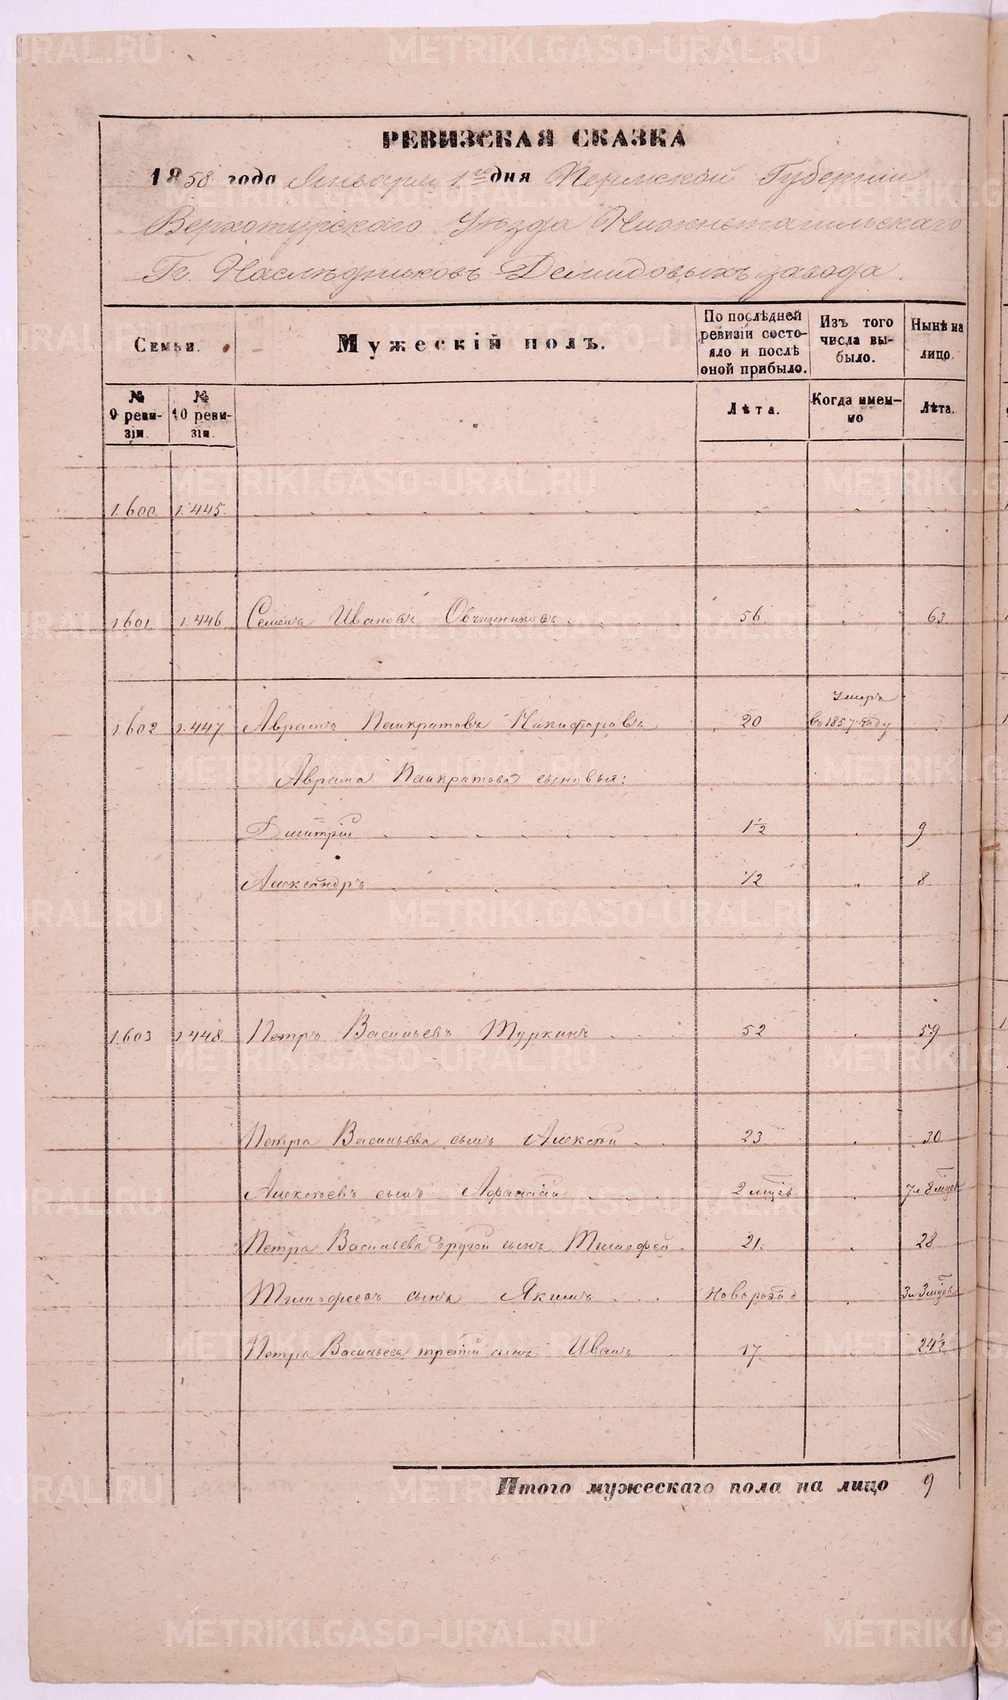 РЕВИЗСКАЯ СКАЗКА
1858 года Января 1го дня Пермской Губернии
Верхотурскаго Уезда Нижнетагильскаго
Гг. Наследниковъ Демидовыхъ завода.
Семьи.
Мужескій полъ.
По послѣдней ревизіи состояло и послѣ оной прибыло.
Изъ того числа выбыло.
Нынѣ на лицо.
№ 9 ревизіи.
№ 10 ревизіи.
Лѣта.
Когда именно
Лѣта.
1.600. 1.445.
1.601 1.446 Семенъ Ивановъ Овчинниковъ 56 63
1.602 1.447 Аврамъ Панкратовъ Никифоровъ 20 Умеръ въ 1857 году
Аврама Панкратова сыновья:
Дмитрій 1½ 9
Александръ ½ 8
1.603 1.448 Петръ Васильевъ Туркинъ 52 59
Петра Васильева сынъ Алексей 23 30
Алексеевъ сынъ Афанасій 2 мцѣв 7 л 8 мцѣв
Петра Васильева другой сынъ Тимофей 21. 28
Тимофеевъ сынъ Якимъ Новорожд 3 л 3 мцѣв
Петра Васильева третій сынъ Иванъ 17 24½
Итого мужескаго пола на лицо 9
METRIKI.GASO-URAL.RU